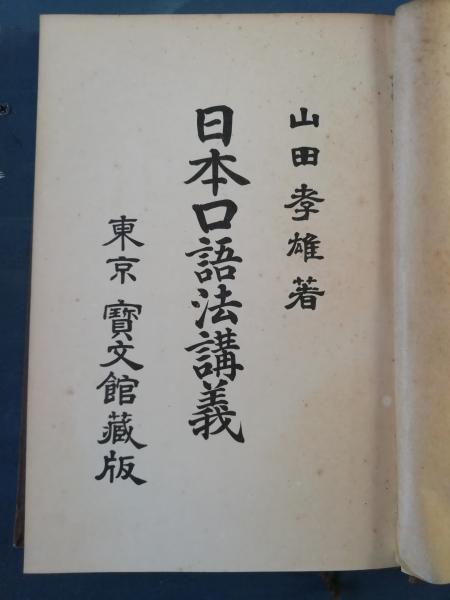 山田孝雄著
日本口語法講義
東京寳文館藏版